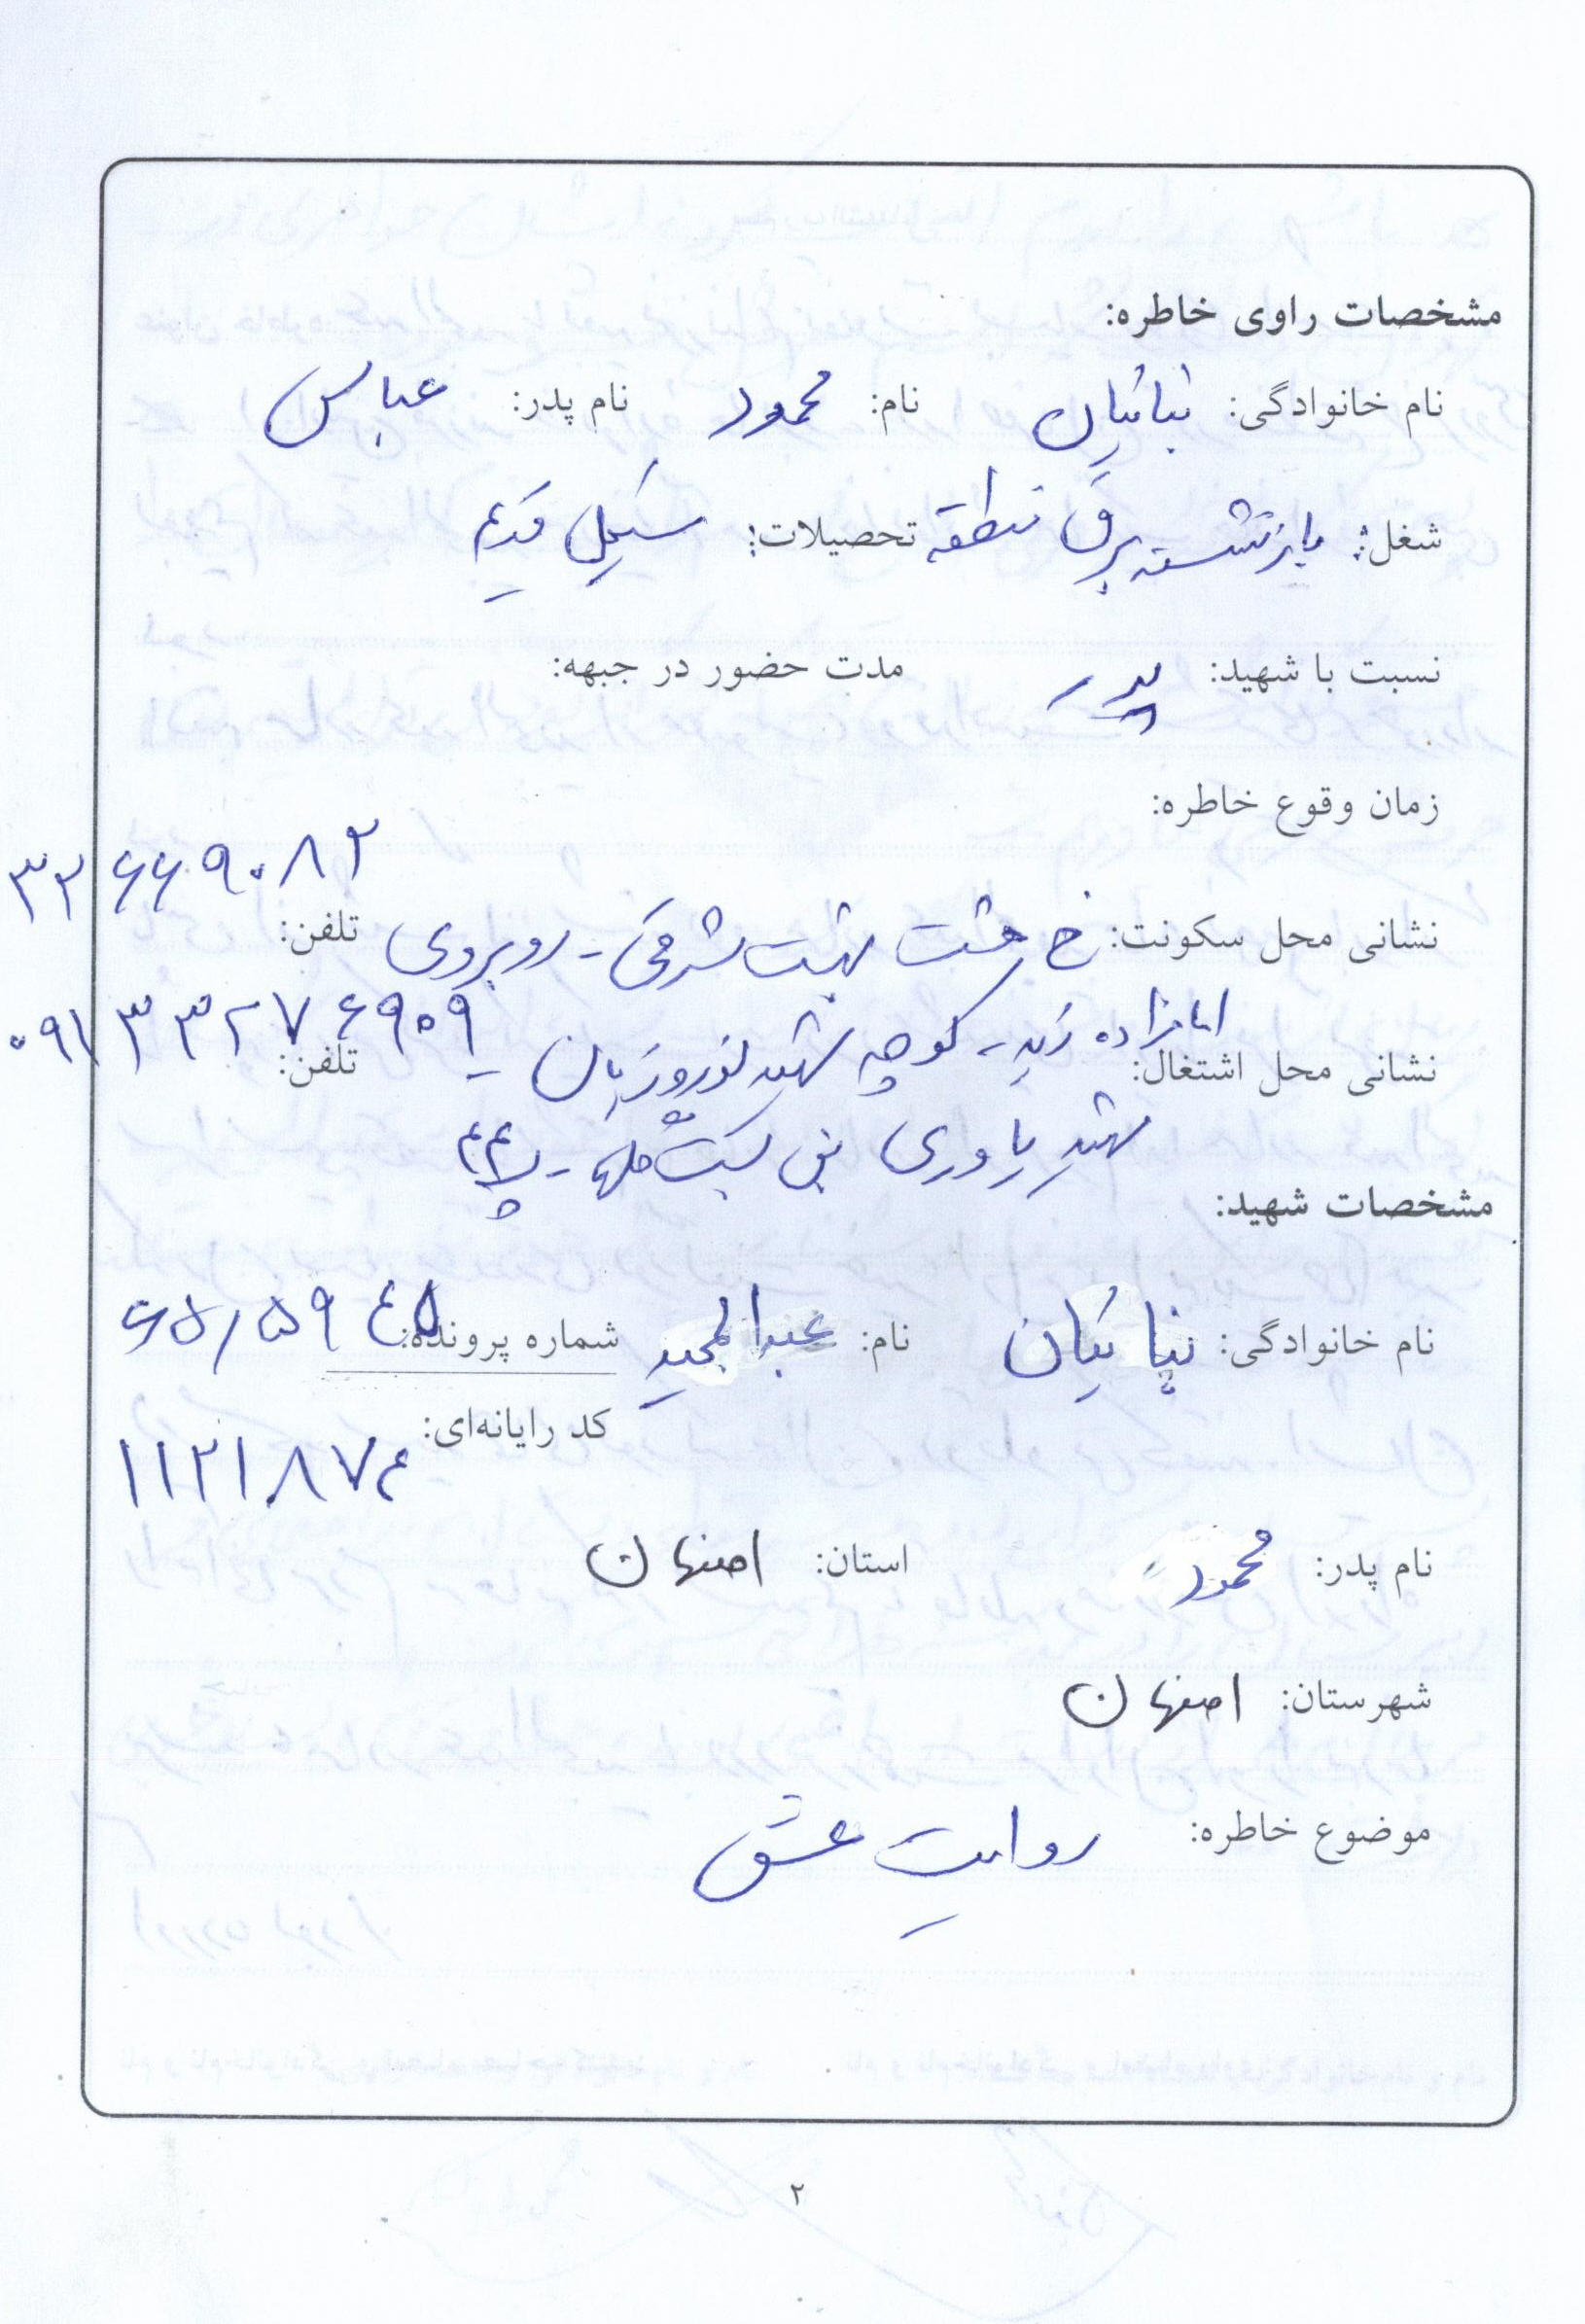 مشخصات راوی خاطره:
نام خانوادگی: نبائیان نام: محمود نام پدر: عباس
شغل: بازنشسته برق منطقه تحصیلات: سیکل قدیم
نسبت با شهید: پدر مدت حضور در جبهه:
زمان وقوع خاطره:
۳۲۶۶۹۰۸۲
نشانی محل سکونت: خ هشت بهشت شرقی - روبروی تلفن:
امامزاده زید - کوچه شهید نوروزیان - ۰۹۱۳۳۲۷۶۹۰۹
نشانی محل اشتغال: تلفن:
شهید یاوری بن بست - پ ۴۴
مشخصات شهید:
نام خانوادگی: نبائیان نام: عبدالمجید شماره پرونده: ۶۵/۵۹۴۵
کد رایانه‌ای: ۱۱۲۱۸۷۴
نام پدر: محمود استان: اصفهان
شهرستان: اصفهان
موضوع خاطره: روایت عشق
۲